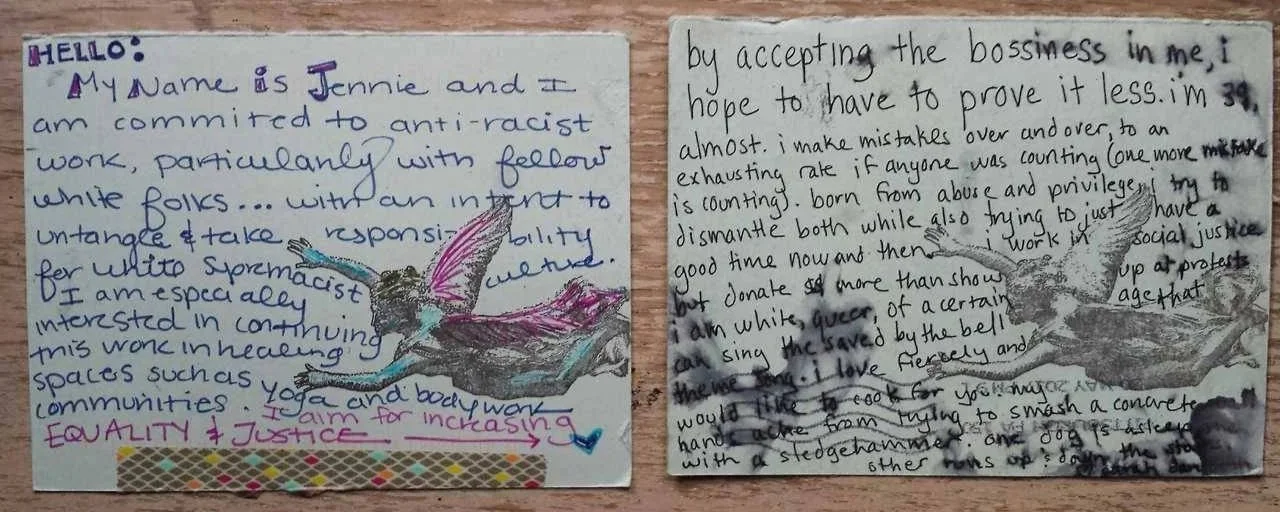 HELLO:
My Name is Jennie and I
am commited to anti-racist
work, particularly with fellow
white folks... with an intent to
untangle & take responsi- bility
for white supremacist culture.
I am especially
interested in continuing
this work in healing
spaces such as yoga and bodywork
communities.
I aim for increasing
EQUALITY & JUSTICE
by accepting the bossiness in me, i
hope to have to prove it less. i'm 39,
almost. i make mistakes over and over, to an
exhausting rate if anyone was counting (one more mistake
is counting). born from abuse and privilege, i try to
dismantle both while also trying to just have a
good time now and then. i work in social justice
but donate more than show up at protests
i am white, queer, of a certain age that
can sing the saved by the bell
theme song. i love fiercely and
would like to cook for you. my
hands ache from trying to smash a concrete
with a sledgehammer. one dog is asleep
other runs up & down the